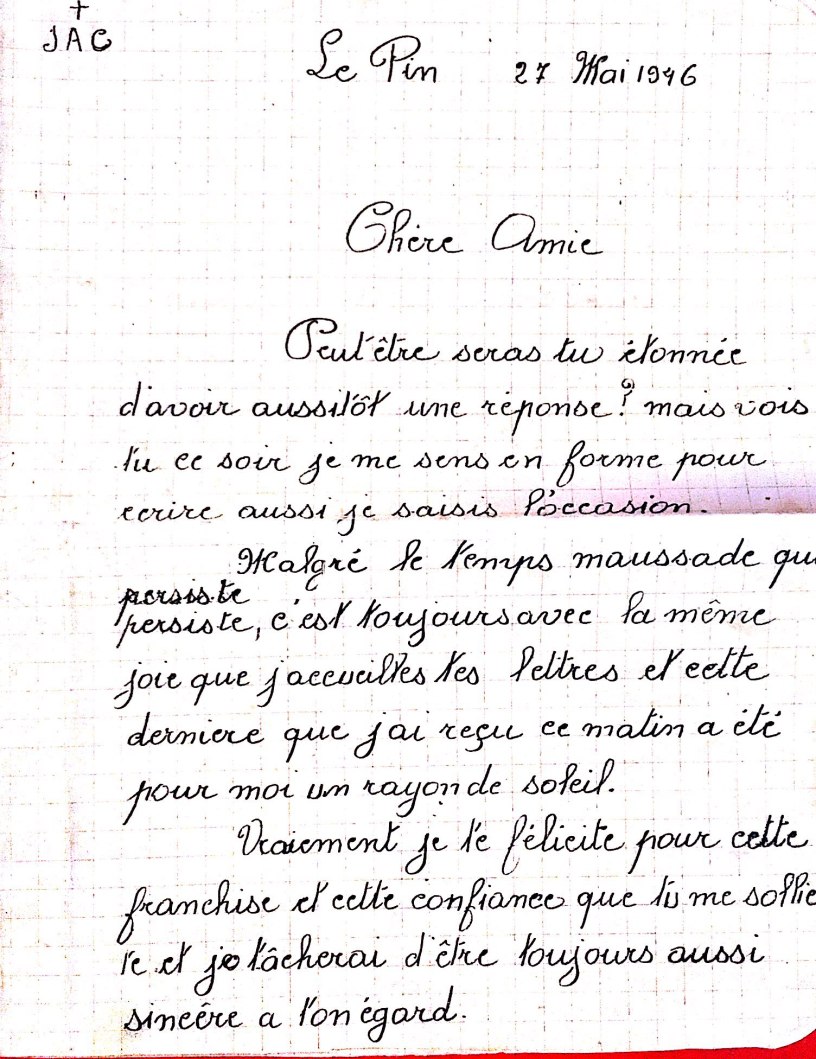 +
JAC
Le Pin 27 Mai 1946
Chère Amie
Peut'être seras tu étonnée
d'avoir aussitôt une réponse? mais vois
tu ce soir je me sens en forme pour
ecrire aussi je saisis l'occasion.
Malgré le temps maussade qui
persiste
persiste, c'est toujours avec la même
joie que j'accueilles tes lettres et cette
derniere que j'ai reçu ce matin a été
pour moi un rayon de soleil.
Vraiement je te félicite pour cette
franchise et cette confiance que tu me sollici
te et je tâcherai d'être toujours aussi
sincère a ton égard.